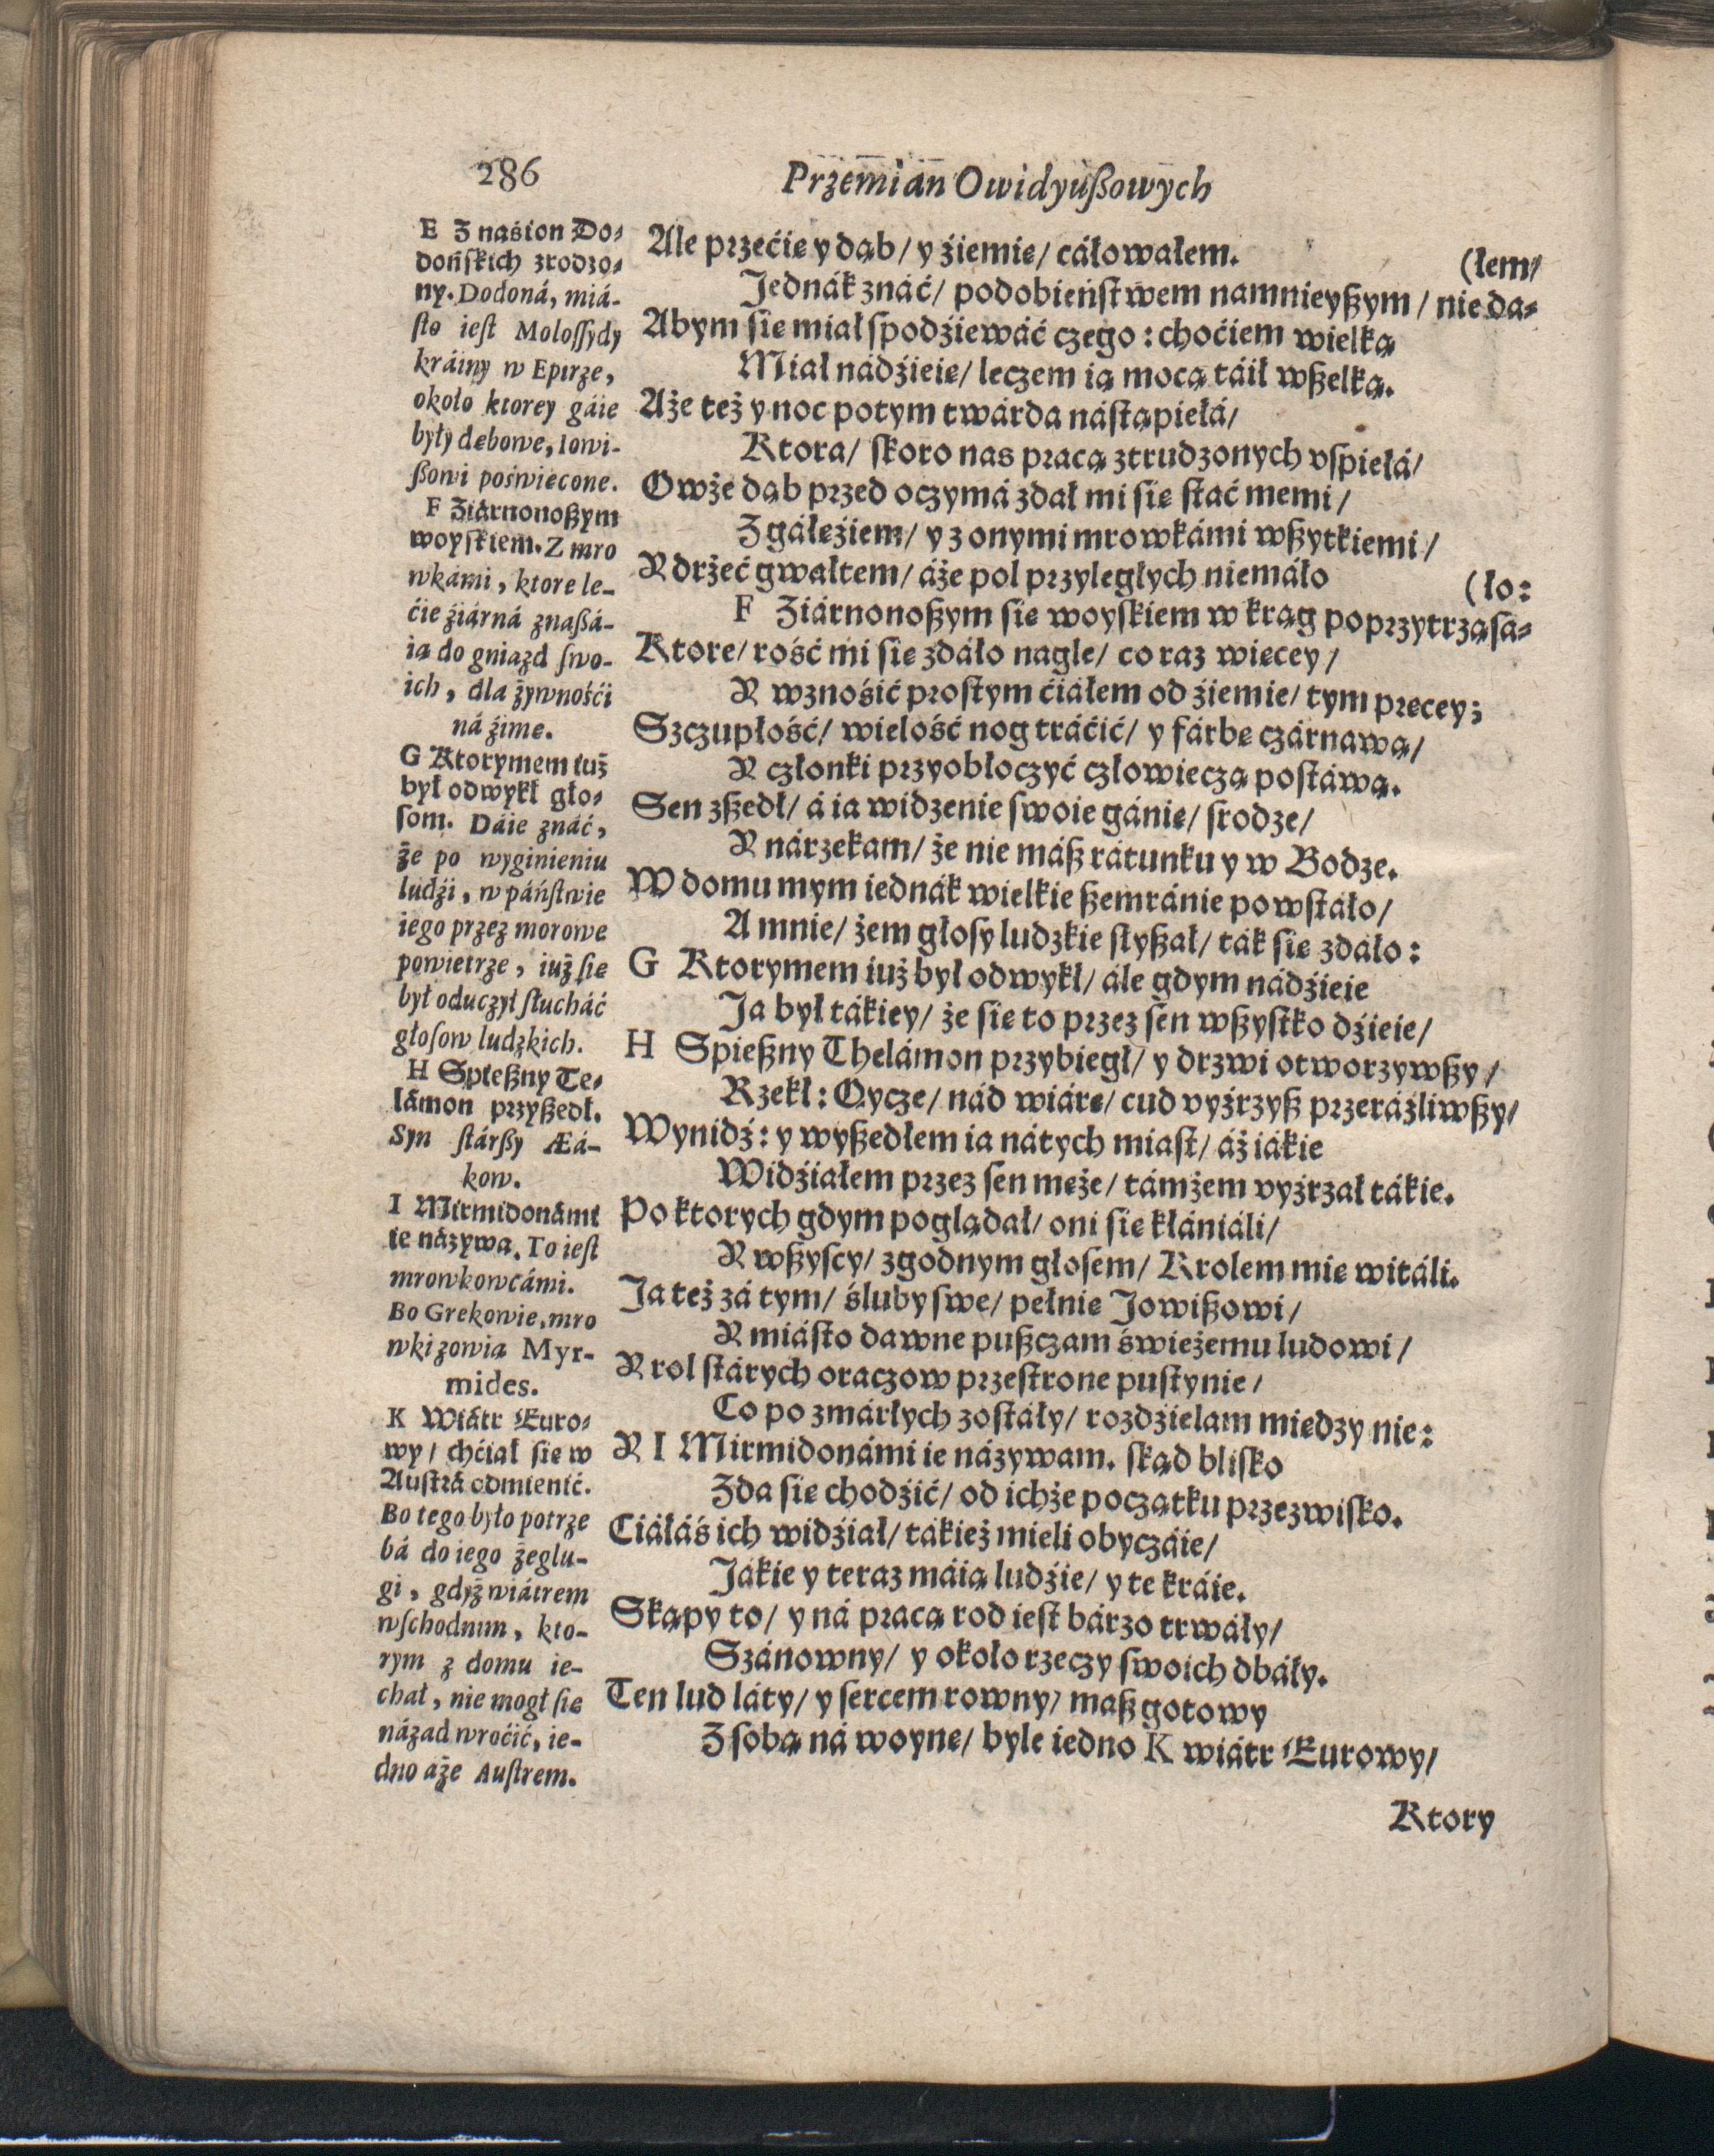 286
Przemian Owidyußowych
E Z naśion Do-
dońſkich zrodzo-
ny. Dodoná, miá-
ſto ieſt Moloſſydy
kráiny w Epirze,
około ktorey gáie
były dębowe, Iowi-
ßowi poświęcone.
F Ziárnonoßym
woyſkiem. Z mro
wkámi, ktore le-
ćie źiárná znaßá-
ią do gniazd ſwo-
ich, dla żywnośći
ná źimę.
G Ktorymem iuż
był odwykł gło-
ſom. Dáie znáć,
że po wyginieniu
ludźi, w páńſtwie
iego przez morowe
powietrze, iuż ſię
był oduczył ſłucháć
głoſow ludzkich.
H Spießny Te-
lámon przyßedł.
Syn ſtárßy Æá-
kow.
I Mirmidonámi
ie názywa. To ieſt
mrowkowcámi.
Bo Grekowie, mro
wki zowią Myr-
mides.
K Wiátr Euro-
wy / chćiał ſię w
Auſtrá odmienić.
Bo tego było potrze
bá do iego żeglu-
gi, gdyż wiátrem
wſchodnim, kto-
rym z domu ie-
chał, nie mogł ſię
názad wroćić, ie-
dno áże Auſtrem.
Ale przećię y dąb / y źiemię / cáłowałem. (łem/
Jednák znáć / podobieńſtwem namnieyßym / nie da-
Abym ſię miał ſpodźiewáć czego : choćiem wielką
Miał nádźieię / leczem ią mocą táił wßelką.
Aże też y noc potym twárda náſtąpiełá /
Ktora / ſkoro nas pracą ztrudzonych vſpiełá /
Owże dąb przed oczymá zdał mi ſię ſtać memi /
Z gáłęźiem / y z onymi mrowkámi wßytkiemi /
Y drżeć gwałtem / áże pol przyległych niemáło (ło:
F Ziárnonoßym ſię woyſkiem w krąg poprzytrząsá-
Ktore / rość mi ſię zdáło nagle / co raz więcey /
Y wznośić proſtym ćiáłem od źiemie / tym pręcey;
Szczupłość / wielość nog tráćić / y fárbę czárnawą /
Y członki przyobłoczyć człowieczą poſtáwą.
Sen zßedł / á ia widzenie ſwoie gánię / ſrodze /
Y nárzekam / że nie máß rátunku y w Bodze.
W domu mym iednák wielkie ßemránie powſtáło /
A mnie / żem głoſy ludzkie ſłyßał / ták ſię zdáło :
G Ktorymem iuż był odwykł / ále gdym nádźieie
Ja był tákiey / że ſię to przez ſen wßyſtko dźieie /
H Spießny Thelámon przybiegł / y drzwi otworzywßy /
Rzekł : Oycze / nád wiárę / cud vyźrzyß przeráźliwßy /
Wynidź : y wyßedłem ia nátych miaſt / áż iákie
Widźiałem przez ſen męże / támżem vyźrzał tákie.
Po ktorych gdym poglądał / oni ſię kłániáli /
Y wßyſcy / zgodnym głoſem / Krolem mię witáli.
Ja też zá tym / śluby ſwe / pełnię Jowißowi /
Y miáſto dawne pußczam świeżemu ludowi /
Y rol ſtárych oraczow przeſtrone puſtynie /
Co po zmárłych zoſtáły / rozdźielam między nie :
Y I Mirmidonámi ie názywam. ſkąd bliſko
Zda ſię chodźić / od ichże początku przezwiſko.
Ciáłáś ich widźiał / tákież mieli obyczáie /
Jákie y teraz máią ludźie / y te kráie.
Skąpy to / y ná pracą rod ieſt bárzo trwáły /
Szánowny / y około rzeczy ſwoich dbáły.
Ten lud láty / y ſercem rowny / maß gotowy
Z ſobą ná woynę / byle iedno K wiátr Eurowy /
Ktory